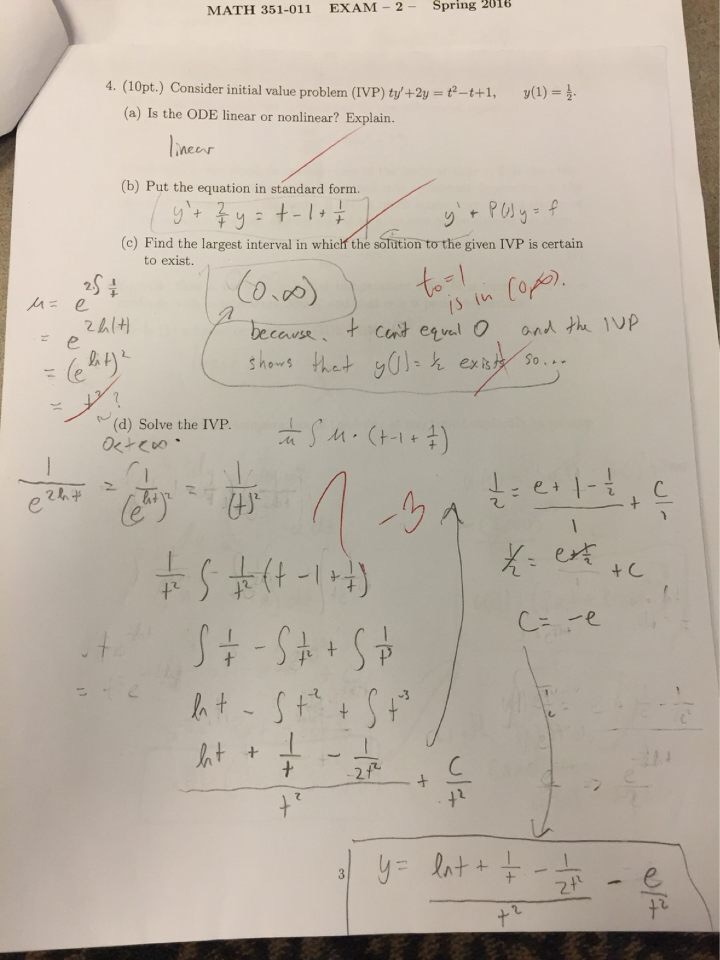 MATH 351-011 EXAM - 2 - Spring 2016
4. (10pt.) Consider initial value problem (IVP) ty'+2y = t²-t+1, y(1) = 1/2.
(a) Is the ODE linear or nonlinear? Explain.
linear
(b) Put the equation in standard form.
y' + 2/t y = t - 1 + 1/t
y' + P(t)y = f
(c) Find the largest interval in which the solution to the given IVP is certain
to exist.
(0,∞)
t₀=1
is in (0,∞).
because, t can't equal 0 and the IVP
shows that y(1)= 1/2 exists so...
μ = e^(2∫1/t)
= e^(2ln(t))
= (e^(ln t))²
= t² ?
0<t<∞
(d) Solve the IVP.
1/μ ∫ μ · (t-1+1/t)
1/e^(2ln t) = 1/(e^(ln t))² = 1/(t)²
-3
1/t² ∫ 1/t² (t - 1 + 1/t)
∫ 1/t - ∫ 1/t² + ∫ 1/t³
ln t - ∫ t⁻² + ∫ t⁻³
(ln t + 1/t - 1/(2t²))/t² + C/t²
1/2 = (e + 1 - 1/2)/1 + C/1
1/2 = (e + 1/2)/1 + C
C = -e
3
y = (ln t + 1/t - 1/(2t²))/t² - e/t²